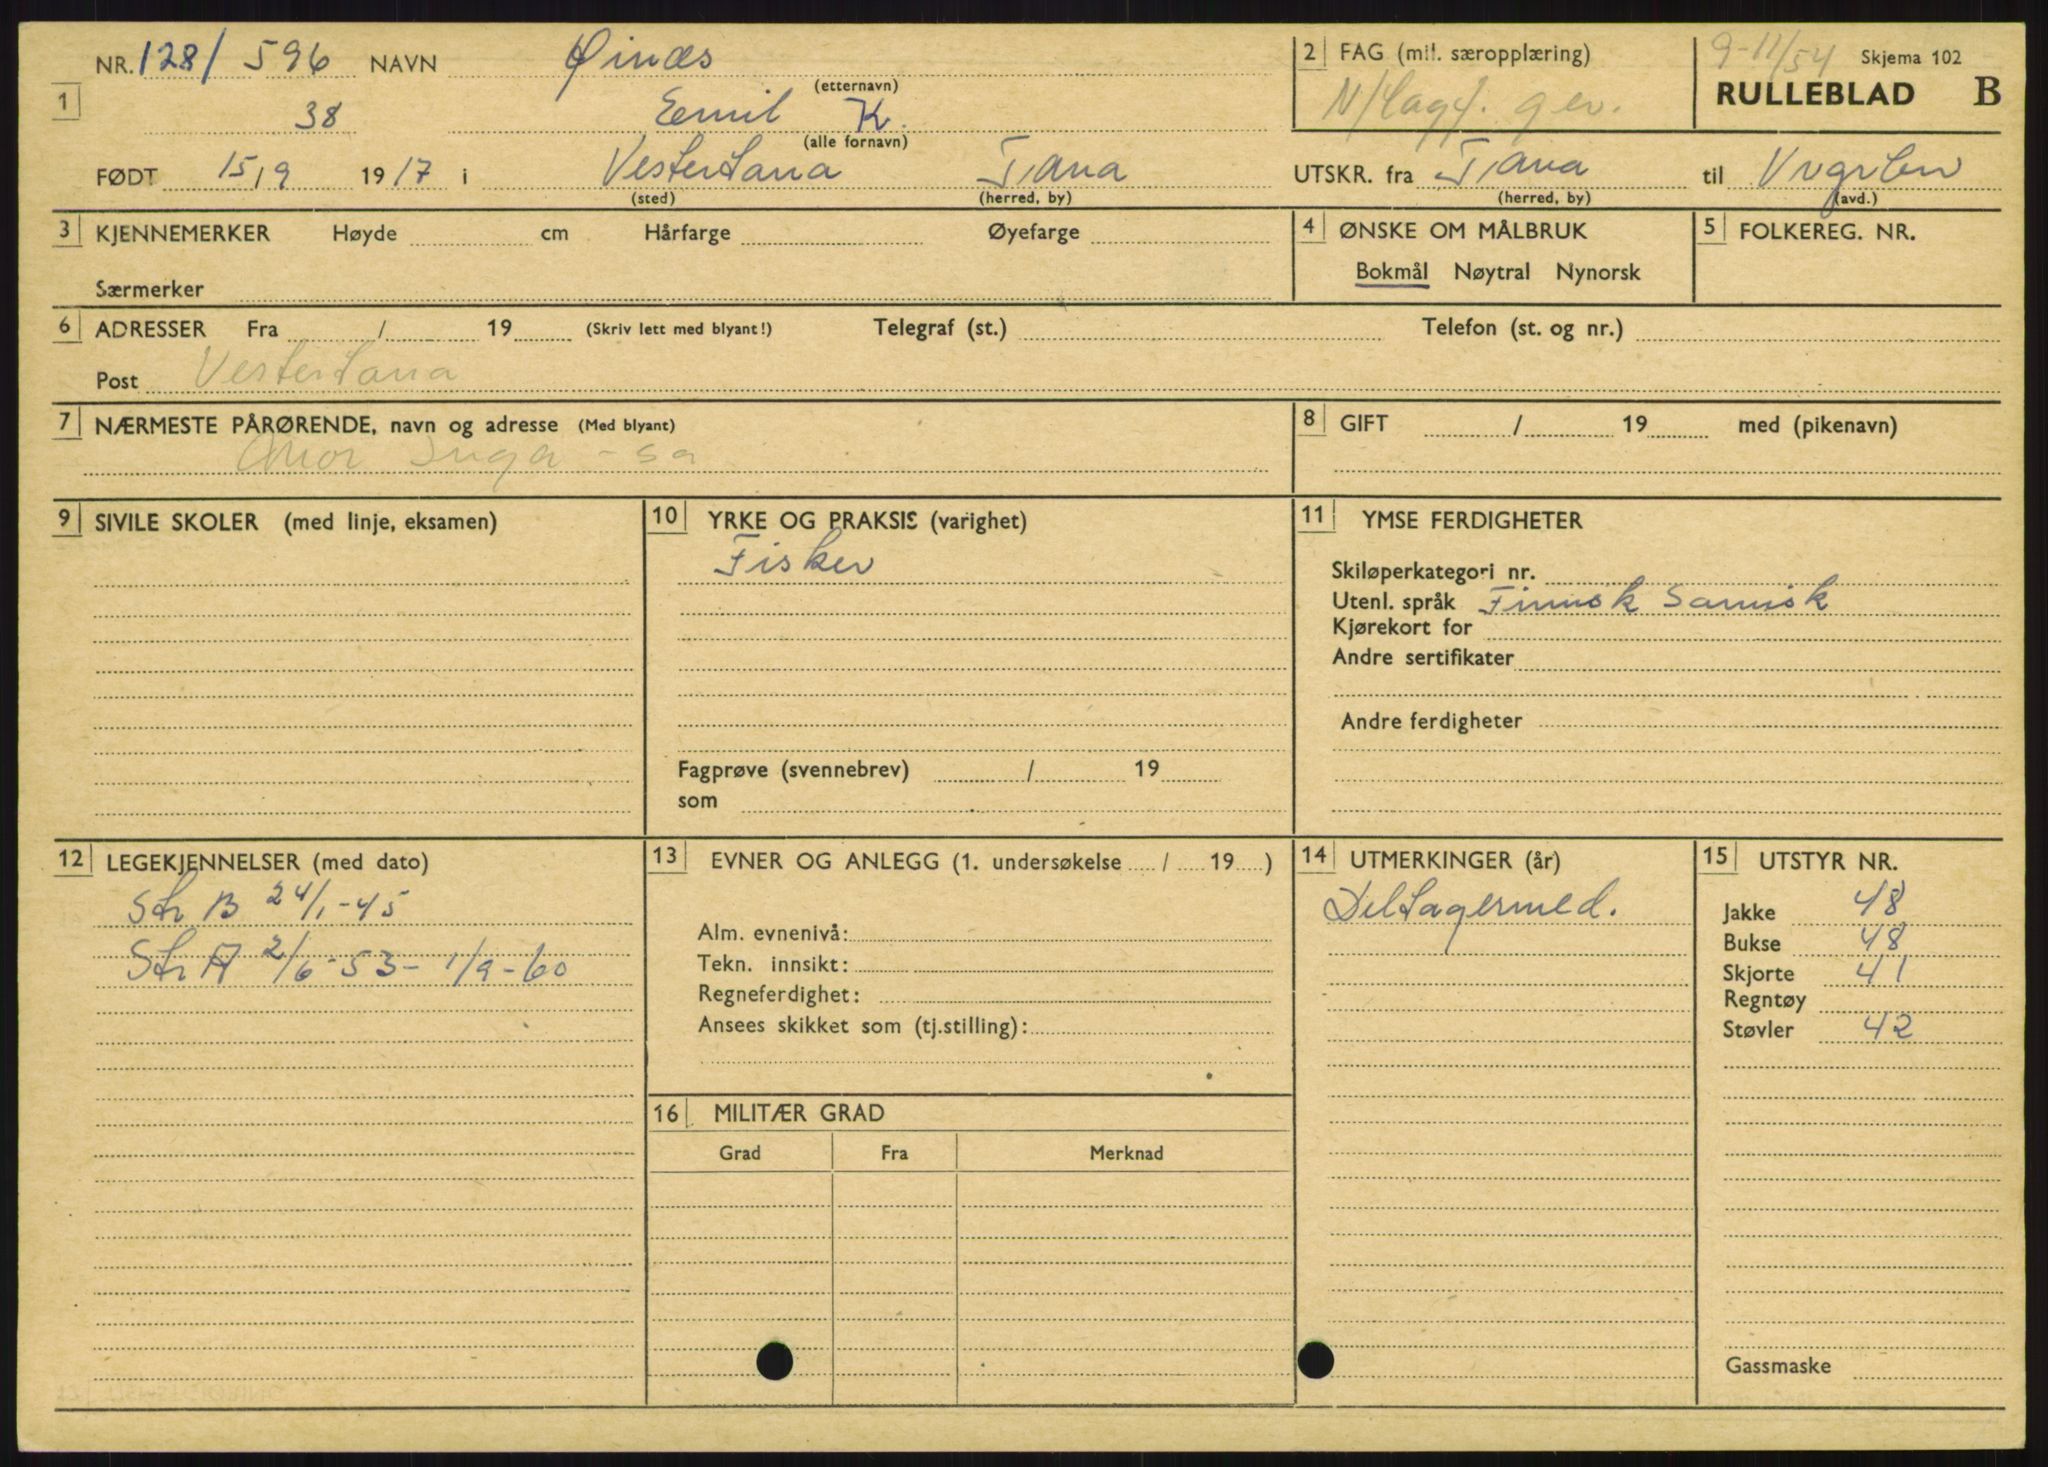 NR. 128/ 596 NAVN Øinæs 2 FAG (mil. særopplæring) 9-11/54 Skjema 102
1 (etternavn) RULLEBLAD B
38 Emil K.
(alle fornavn)
FØDT 15/9 1917 i Vestertana Tana UTSKR. fra Tana til
(sted) (herred, by) (herred, by) (avd.)
3 KJENNEMERKER Høyde cm Hårfarge Øyefarge 4 ØNSKE OM MÅLBRUK 5 FOLKEREG. NR.
Bokmål Nøytral Nynorsk
Særmerker
6 ADRESSER Fra / 19 (Skriv lett med blyant!) Telegraf (st.) Telefon (st. og nr.)
Post Vestertana
7 NÆRMESTE PÅRØRENDE, navn og adresse (Med blyant) 8 GIFT / 19 med (pikenavn)
Mor Inga - sa
9 SIVILE SKOLER (med linje, eksamen) 10 YRKE OG PRAKSIS (varighet) 11 YMSE FERDIGHETER
Fisker
Skiløperkategori nr.
Utenl. språk Finnsk Samisk
Kjørekort for
Andre sertifikater
Andre ferdigheter
Fagprøve (svennebrev) / 19
som
12 LEGEKJENNELSER (med dato) 13 EVNER OG ANLEGG (1. undersøkelse / 19 ) 14 UTMERKINGER (år) 15 UTSTYR NR.
Str B 24/1-45 Deltagermed. Jakke 48
Alm. evnenivå: Bukse 48
Str A 2/6-53- 1/9-60 Tekn. innsikt: Skjorte 41
Regneferdighet: Regntøy
Ansees skikket som (tj.stilling): Støvler 42
16 MILITÆR GRAD
Grad Fra Merknad
Gassmaske